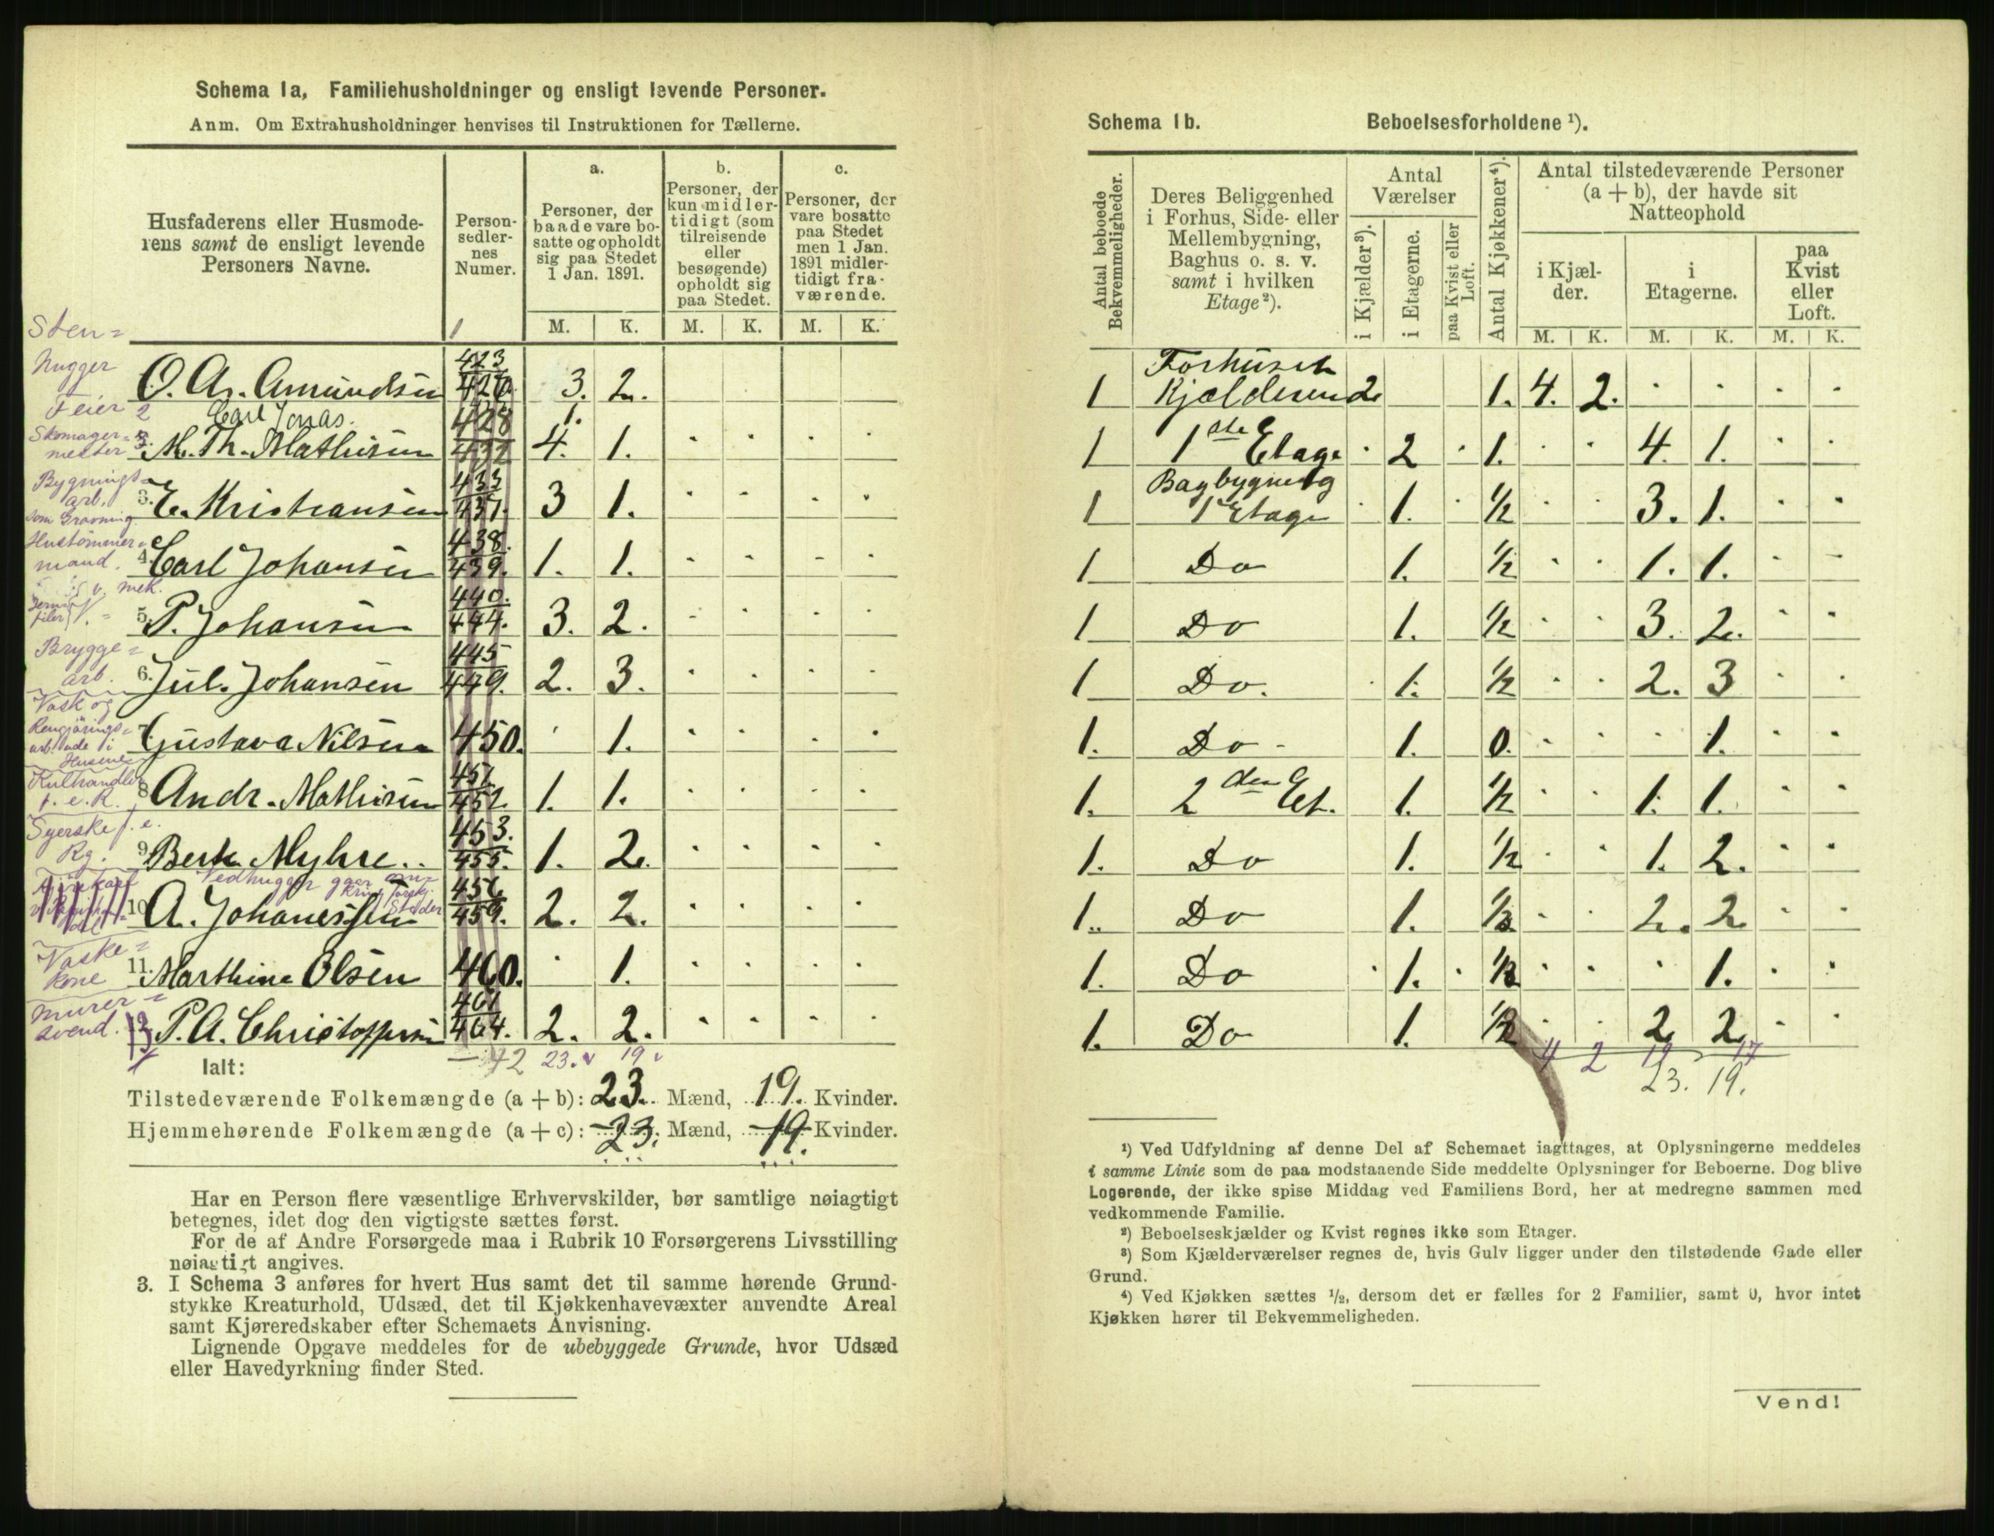 Schema 1a, Familiehusholdninger og ensligt levende Personer.
Anm. Om Extrahusholdninger henvises til Instruktionen for Tællerne.
Husfaderens eller Husmoderens samt de ensligt levende Personers Navne.
Personsedlernes Numer.
a.
Personer, der baade vare bosatte og opholdt sig paa Stedet 1 Jan. 1891.
b.
Personer, der kun midlertidigt (som tilreisende eller besøgende) opholdt sig paa Stedet.
c.
Personer, der vare bosatte paa Stedet men 1 Jan. 1891 midlertidigt fraværende.
M. K. M. K. M. K.
Sten=
hugger O. A. Amundsen 423 426. 3. 2.
Feier 2 Carl Jonas. 1.
Skomager=
mester M. Th. Mathisen 428 432 4. 1.
Bygnings=
arb. 3. E. Kristiansen 433 437. 3 1.
som Gravning
Hustømmer=
mand. 4. Carl Johansen 438. 439. 1. 1.
mek.
5. P. Johansen 440. 444. 3. 2.
Brygge=
arb. 6. Jul. Johansen 445 449. 2. 3.
Vask og
Rengjørings=
7. Gustava Nilsen 450. 1.
Kulhandler
8 Andr. Mathisen 451. 452. 1. 1.
Syerske f. e.
Rg. 9. Berte Myhre.. 453. 455. 1. 2.
Vedhugger
10 A. Johanessen 456. 459. 2. 2.
Vaske=
kone 11. Marthine Olsen 460. 1.
Murer=
svend. P. A. Christoffersen 461 464. 2. 2.
42 23. 19
Ialt:
Tilstedeværende Folkemængde (a + b): 23. Mænd, 19. Kvinder.
Hjemmehørende Folkemængde (a + c): 23. Mænd, 19. Kvinder.
Har en Person flere væsentlige Erhvervskilder, bør samtlige nøiagtigt
betegnes, idet dog den vigtigste sættes først.
For de af Andre Forsørgede maa i Rubrik 10 Forsørgerens Livsstilling
nøiagtigt angives.
3. I Schema 3 anføres for hvert Hus samt det til samme hørende Grund-
stykke Kreaturhold, Udsæd, det til Kjøkkenhavevæxter anvendte Areal
samt Kjøreredskaber efter Schemaets Anvisning.
Lignende Opgave meddeles for de ubebyggede Grunde, hvor Udsæd
eller Havedyrkning finder Sted.
Schema 1b. Beboelsesforholdene ¹).
Antal beboede Bekvemmeligheder.
Deres Beliggenhed i Forhus, Side- eller Mellembygning, Baghus o. s. v. samt i hvilken Etage ²).
Antal Værelser
i Kjælder ³).
i Etagerne.
paa Kvist eller Loft.
Antal Kjøkkener ⁴).
Antal tilstedeværende Personer (a + b), der havde sit Natteophold
i Kjælder.
i Etagerne.
paa Kvist eller Loft.
M. K. M. K. M. K.
1 Forhuset Kjælderen 2 1. 4. 2.
1 1ste Etage 2 1. 4. 1.
1 Bagbygning 1 Etage 1. ½ 3. 1.
1 Do 1. ½ 1. 1.
1 Do 1. ½ 3. 2.
1 Do. 1. ½ 2. 3
1. Do - 1. 0. 1.
1. 2den Et. 1. ½ 1. 1.
1. Do 1. ½ 1. 2.
1. Do 1. 2. 2
1. Do 1. 1.
1. Do 1. 2 2
4 2 19 17
23. 19.
¹) Ved Udfyldning af denne Del af Schemaet iagttages, at Oplysningerne meddeles
i samme Linie som de paa modstaaende Side meddelte Oplysninger for Beboerne. Dog blive
Logerende, der ikke spise Middag ved Familiens Bord, her at medregne sammen med
vedkommende Familie.
²) Beboelseskjælder og Kvist regnes ikke som Etager.
³) Som Kjælderværelser regnes de, hvis Gulv ligger under den tilstødende Gade eller
Grund.
⁴) Ved Kjøkken sættes ½, dersom det er fælles for 2 Familier, samt 0, hvor intet
Kjøkken hører til Bekvemmeligheden.
Vend!